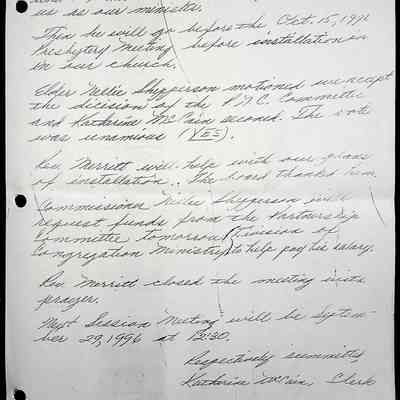 us as our minister.
Then he will go before the Oct. 15, 1996
Presbytery Meeting before installation
in our church.
Elder Shepperson motioned we accept
the dicision of the P.N.C. Committe
and Katherine McCain second. The vote
was unamious (YES).
Rev. Merritt will help with our plans
of installation.. The board thanked him
Commissioner Shepperson will
request funds from the Partnership
Committe tomorrow (Division of
Congregation Ministry) to help pay his salary.
Rev. Merritt closed the meeting with
prayer.
Next Session Meeting will be Septem-
ber 29, 1996 at 12:30.
Respectively summitts,
Katherine McCain, Clerk